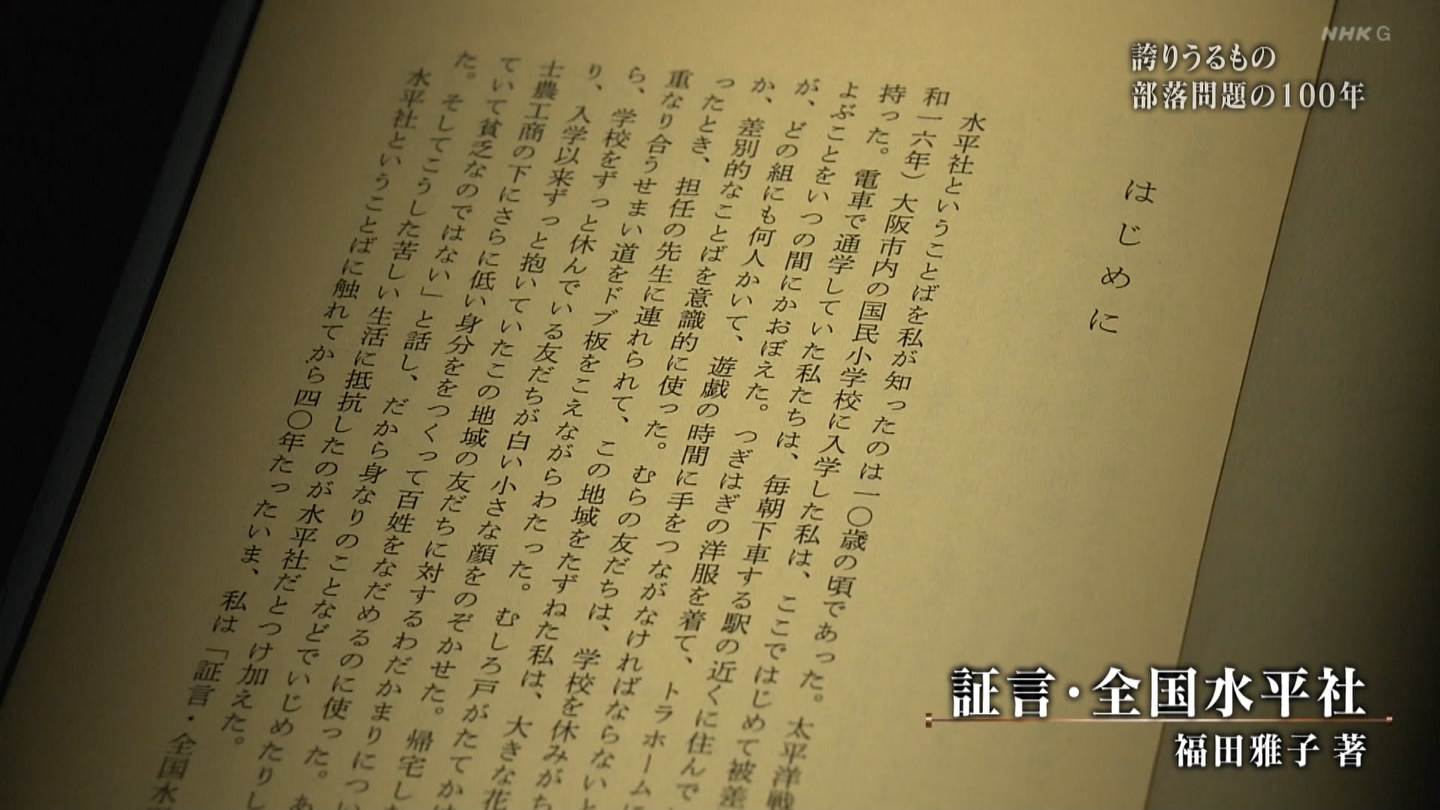 NHK G
誇りうるもの
部落問題の100年
はじめに
水平社ということばを私が知ったのは一〇歳の頃であった。太平洋戦
和一六年）大阪市内の国民小学校に入学した私は、ここではじめて被差
持った。電車で通学していた私たちは、毎朝下車する駅の近くに住んで
よぶことをいつの間にかおぼえた。つぎはぎの洋服を着て、トラホームに
が、どの組にも何人かいて、遊戯の時間に手をつながなければならないと
か、差別的なことばを意識的に使った。むらの友だちは、学校を休みがち
ったとき、担任の先生に連れられて、この地域をたずねた私は、大きな花
重なり合うせまい道をドブ板をこえながらわたった。むしろ戸がたてかけ
ら、学校をずっと休んでいる友だちが白い小さな顔をのぞかせた。帰宅した
り、入学以来ずっと抱いていたこの地域の友だちに対するわだかまりについ
士農工商の下にさらに低い身分ををつくって百姓をなだめるのに使った。あ
ていて貧乏なのではない」と話し、だから身なりのことなどでいじめたりし
た。そしてこうした苦しい生活に抵抗したのが水平社だとつけ加えた。
水平社ということばに触れてから四〇年たったいま、私は「証言・全国水
証言・全国水平社
福田雅子 著